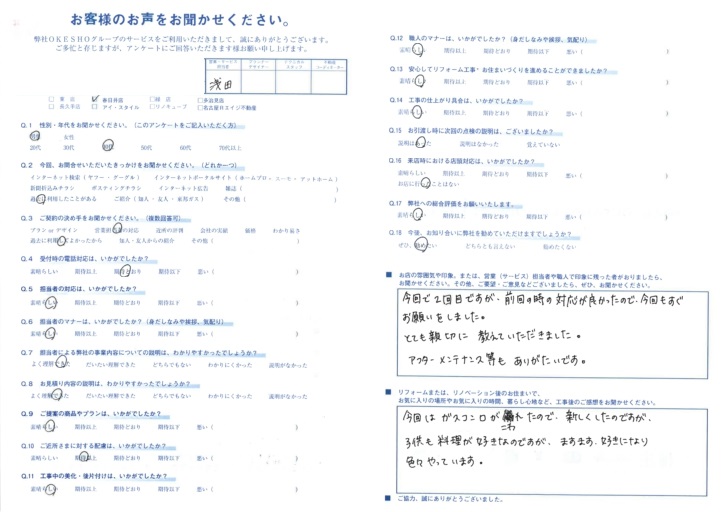 お客様のお声をお聞かせください。
弊社OKESHOグループのサービスをご利用いただきまして、誠にありがとうございます。
ご多忙と存じますが、アンケートにご回答いただきます様お願い申し上げます。
浅田
□ 本店 ☑ 春日井店 □ 緑店 □ 多治見店
□ 長久手店 □ アイ・スタイル □ リノキューブ □ 名古屋Rエイジ不動産
Q.1 性別・年代をお聞かせください。（このアンケートをご記入いただく方）
男性 女性
20代 30代 40代 50代 60代 70代以上
Q.2 今回、お問合せいただいたきっかけをお聞かせください。（どれか一つ）
インターネット検索（ヤフー・グーグル） インターネットポータルサイト（ホームプロ・エーモ・アットホーム）
新聞折込みチラシ ポスティングチラシ インターネット広告 雑誌（ ）
過去に利用したことがある ご紹介（知人・友人・東邦ガス） その他（ ）
Q.3 ご契約の決め手をお聞かせください。（複数回答可）
プラン or デザイン 営業担当者の対応 近所の評判 会社の実績 価格 わかり易さ
過去に利用してよかったから 知人・友人からの紹介 その他（ ）
Q.4 受付時の電話対応は、いかがでしたか？
素晴らしい 期待以上 期待どおり 期待以下 悪い（ ）
Q.5 担当者の対応は、いかがでしたか？
素晴らしい 期待以上 期待どおり 期待以下 悪い（ ）
Q.6 担当者のマナーは、いかがでしたか？（身だしなみや挨拶、気配り）
素晴らしい 期待以上 期待どおり 期待以下 悪い（ ）
Q.7 担当者による弊社の事業内容についての説明は、わかりやすかったでしょうか？
よく理解できた だいたい理解できた どちらでもない わかりにくかった 説明がなかった
Q.8 お見積り内容の説明は、わかりやすかったでしょうか？
よく理解できた だいたい理解できた どちらでもない わかりにくかった 説明がなかった
Q.9 ご提案の商品やプランは、いかがでしたか？
素晴らしい 期待以上 期待どおり 期待以下 悪い（ ）
Q.10 ご近所さまに対する配慮は、いかがでしたか？
素晴らしい 期待以上 期待どおり 期待以下 悪い（ ）
Q.11 工事中の美化・後片付けは、いかがでしたか？
素晴らしい 期待以上 期待どおり 期待以下 悪い（ ）
Q.12 職人のマナーは、いかがでしたか？（身だしなみや挨拶、気配り）
素晴らしい 期待以上 期待どおり 期待以下 悪い（ ）
Q.13 安心してリフォーム工事・お住まいづくりを進めることができましたか？
素晴らしい 期待以上 期待どおり 期待以下 悪い（ ）
Q.14 工事の仕上がり具合は、いかがでしたか？
素晴らしい 期待以上 期待どおり 期待以下 悪い（ ）
Q.15 お引渡し時に次回の点検の説明は、ございましたか？
説明はあった 説明はなかった 覚えていない
Q.16 来店時における店頭対応は、いかがでしたか？
素晴らしい 期待以上 期待どおり 期待以下 悪い（ ）
お店に行ったことはない
Q.17 弊社への総合評価をお願いいたします。
素晴らしい 期待以上 期待どおり 期待以下 悪い（ ）
Q.18 今後、お知り合いに弊社を勧めていただけますでしょうか？
ぜひ、勧めたい どちらとも言えない 勧めたくない
■ お店の雰囲気や印象。または、営業（サービス）担当者や職人で印象に残った者がおりましたら、
お聞かせください。その他、ご要望・ご意見などございましたら、ぜひ、お聞かせください。
今回で2回目ですが、前回の時の対応が良かったので、今回もすぐ
お願いをしました。
とても親切に教えていただきました。
アフターメンテナンス等もありがたいです。
■ リフォームまたは、リノベーション後のお住まいで、
お気に入りの場所やお気に入りの時間、暮らし心地など、工事後のご感想をお聞かせください。
今回はガスコンロがこわれたので、新しくしたのですが、
子供も料理が好きなのですが、ますます、好きになり
色々やっています。
■ ご協力、誠にありがとうございました。